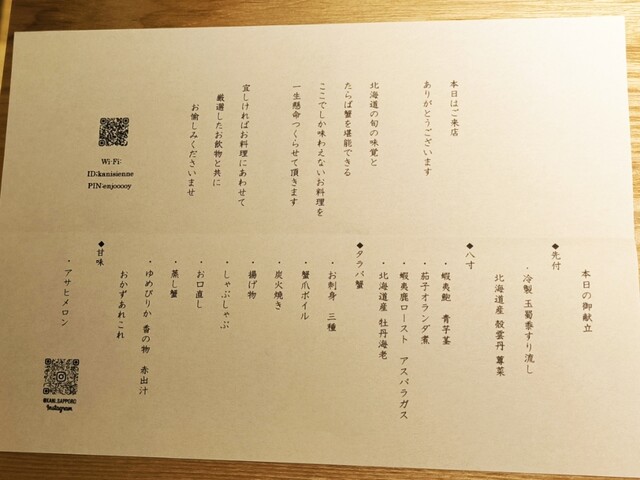 本日の御献立
◆先付
・冷製 玉蜀黍すり流し
北海道産 殻雲丹 蓴菜
◆八寸
・蝦夷鮑 青芋茎
・茄子オランダ煮
・蝦夷鹿ロースト アスパラガス
・北海道産 牡丹海老
◆タラバ蟹
・お刺身 三種
・蟹爪ボイル
・炭火焼き
・揚げ物
・しゃぶしゃぶ
・お口直し
・蒸し蟹
・ゆめぴりか 香の物 赤出汁
おかずあれこれ
◆甘味
・アサヒメロン
本日はご来店
ありがとうございます
北海道の旬の味覚と
たらば蟹を堪能できる
ここでしか味わえないお料理を
一生懸命つくらせて頂きます
宜しければお料理にあわせて
厳選したお飲物と共に
お愉しみくださいませ
Wi-Fi:
ID:kanisienne
PIN:enjooooy
@KANI.SAPPORO
Instagram